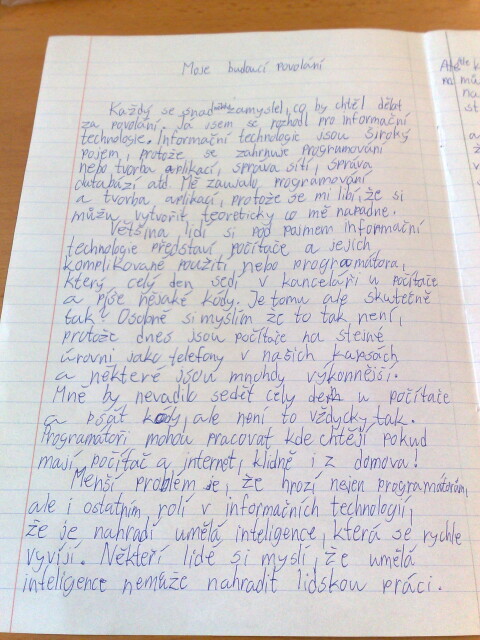 Moje budoucí povolání
Každý se snad zamyslel, co by chtěl dělat
za povolání. Já jsem se rozhodl pro informační
technologie. Informační technologie jsou široký
pojem, protože se zahrnuje programování
nebo tvorba aplikací, správa sítí, správa
databází atd. Mě zaujalo programování
a tvorba aplikací, protože se mi líbí, že si
můžu vytvořit teoreticky co mě napadne.
Většina lidí si pod pojmem informační
technologie představí počítače a jejich
komplikované použití nebo programátora,
který celý den sedí v kanceláři u počítače
a píše nějaké kódy. Je tomu ale skutečně
tak? Osobně si myslím že to tak není,
protože dnes jsou počítače na stejné
úrovni jako telefony v našich kapsách
a některé jsou mnohdy výkonnější.
Mně by nevadilo sedět celý den u počítače
a psát kódy, ale není to vždycky tak.
Programátoři mohou pracovat kde chtějí pokud
mají počítač a internet, klidně i z domova!
Menší problém je, že hrozí nejen programátorům,
ale i ostatním rolí v informačních technologií,
že je nahradí umělá inteligence, která se rychle
vyvíjí. Někteří lidé si myslí, že umělá
inteligence nemůže nahradit lidskou práci.